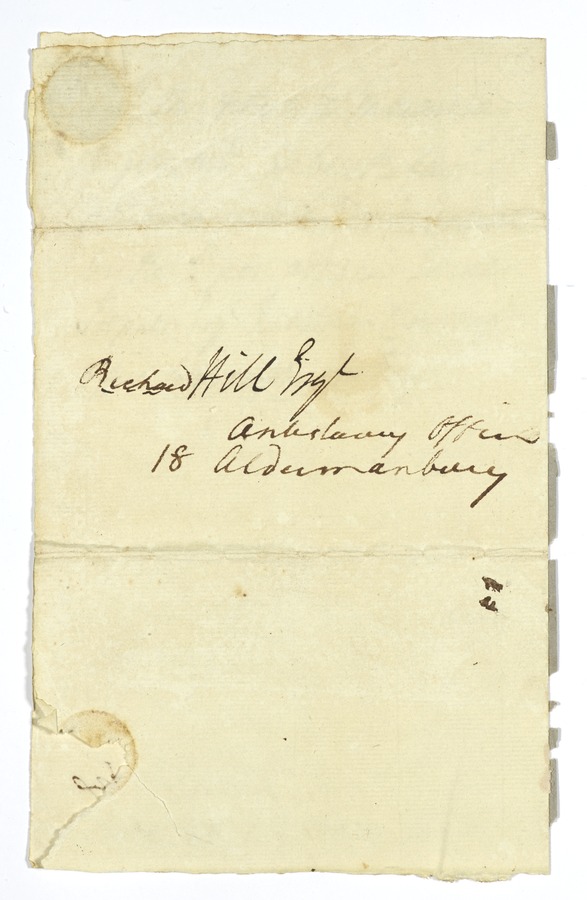 Richard Hill Esqr
Antislavery Office
18 Aldermanbury